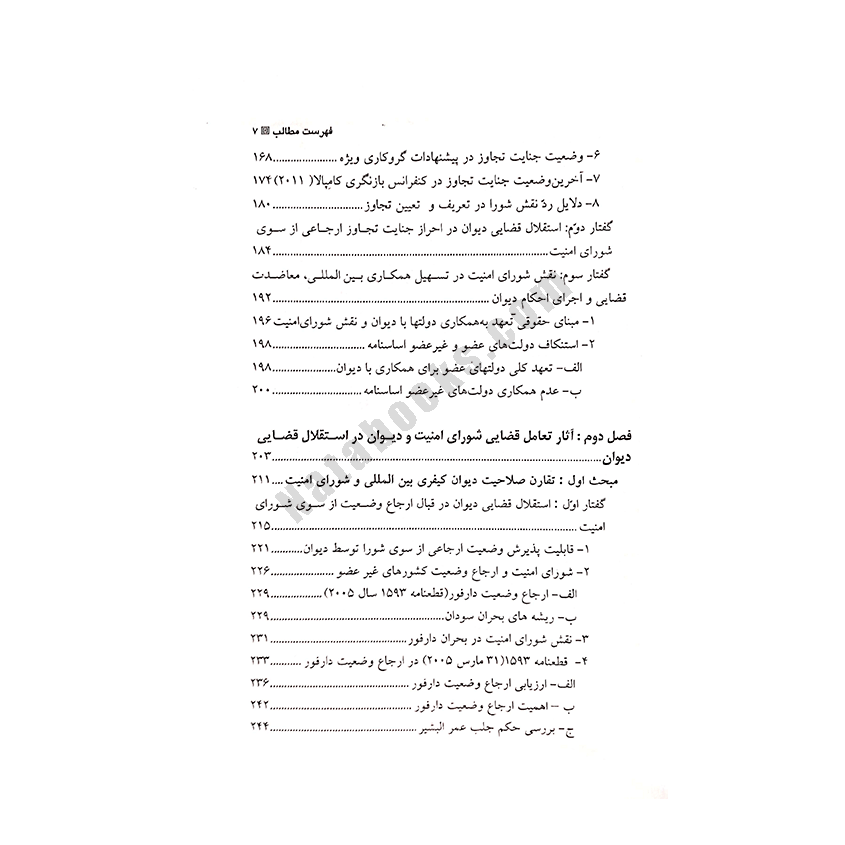 فهرست مطالب ▣ ۷
۶- وضعیت جنایت تجاوز در پیشنهادات گروکاری ویژه ......................۱۶۸
۷- آخرین‌وضعیت جنایت تجاوز در کنفرانس بازنگری کامپالا( ۲۰۱۱)۱۷۴
۸- دلایل ردّ نقش شورا در تعریف و تعیین تجاوز ...............................۱۸۰
گفتار دوّم: استقلال قضایی دیوان در احراز جنایت تجاوز ارجاعی از سوی
شورای امنیت..............................................................................................۱۸۴
گفتار سوم: نقش شورای امنیت در تسهیل همکاری بین‌المللی، معاضدت
قضایی و اجرای احکام دیوان ..........................................................................۱۹۲
۱- مبنای حقوقی تعهد به‌همکاری دولتها با دیوان و نقش شورای‌امنیت ۱۹۶
۲- استنکاف دولت‌های عضو و غیرعضو اساسنامه ...............................۱۹۸
الف- تعهد کلی دولتهای عضو برای همکاری با دیوان......................۱۹۸
ب- عدم همکاری دولت‌های غیرعضو اساسنامه ...............................۲۰۰
فصل دوم : آثار تعامل قضایی شورای امنیت و دیوان در استقلال قضایی
دیوان.............................................................................................................۲۰۳
مبحث اول : تقارن صلاحیت دیوان کیفری بین المللی و شورای امنیت ....۲۱۱
گفتار اوّل : استقلال قضایی دیوان در قبال ارجاع وضعیت از سوی شورای
امنیت .........................................................................................................۲۱۵
۱- قابلیت پذیرش وضعیت ارجاعی از سوی شورا توسط دیوان...........۲۲۱
۲- شورای امنیت و ارجاع وضعیت کشورهای غیر عضو .....................۲۲۶
الف- ارجاع وضعیت دارفور(قطعنامه ۱۵۹۳ سال ۲۰۰۵)..................۲۲۹
ب- ریشه های بحران سودان............................................................۲۲۹
۳- نقش شورای امنیت در بحران دارفور................................................۲۳۱
۴- قطعنامه ۱۵۹۳(۳۱ مارس ۲۰۰۵) در ارجاع وضعیت دارفور ...........۲۳۳
الف- ارزیابی ارجاع وضعیت دارفور ................................................۲۳۶
ب – اهمیت ارجاع وضعیت دارفور .................................................۲۴۲
ج- بررسی حکم جلب عمر البشیر ..................................................۲۴۴
Natabooks.com